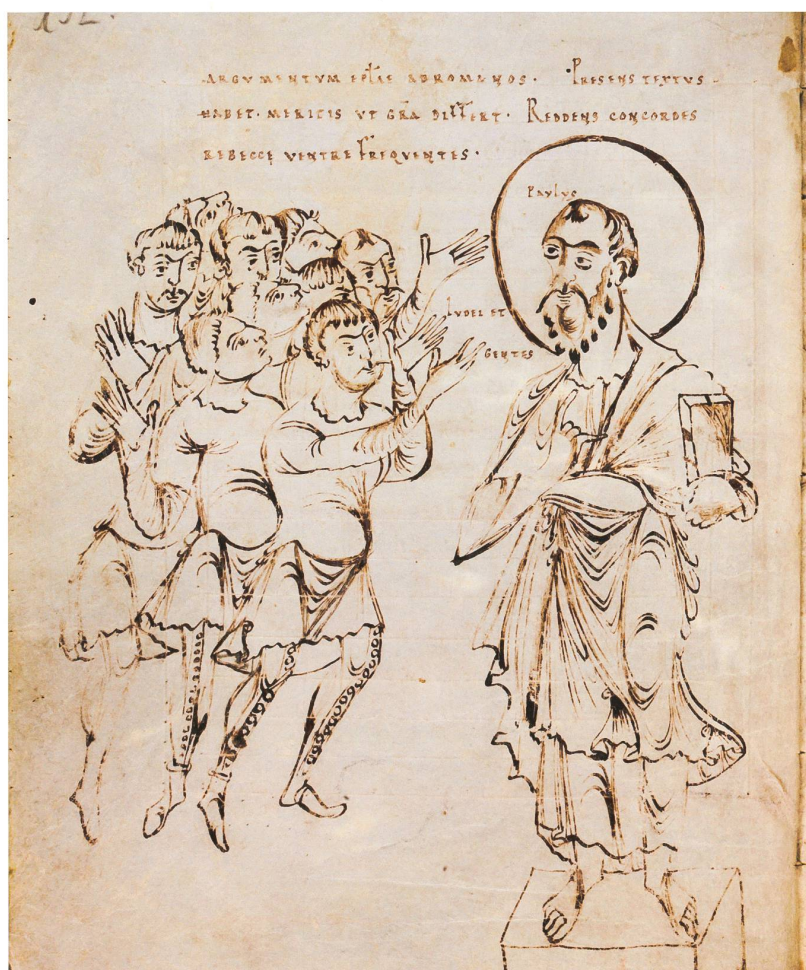 132.
ARGVMENTVM EPLAE ADROMANOS. PRESENS TEXTVS
HABET. MERITIS VT GRA DIFFERT. REDDENS CONCORDES
REBECCĘ VENTRE FREQVENTES.
PAVLVS
IVDEI ET
GENTES